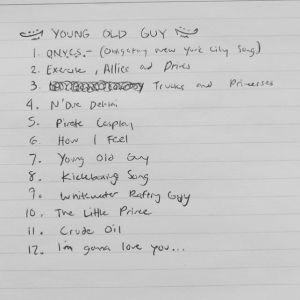 YOUNG OLD GUY
1. O.N.Y.C.S. - (Obligatory New York City Song)
2. Exercise, Allies and
3. Trucks and Princesses
4. N'Dre
5. Pirate Cosplay
6. How I Feel
7. Young Old Guy
8. Kickboxing Song
9. Whitewater Rafting Guy
10. The Little Prince
11. Crude Oil
12. I'm gonna love you...